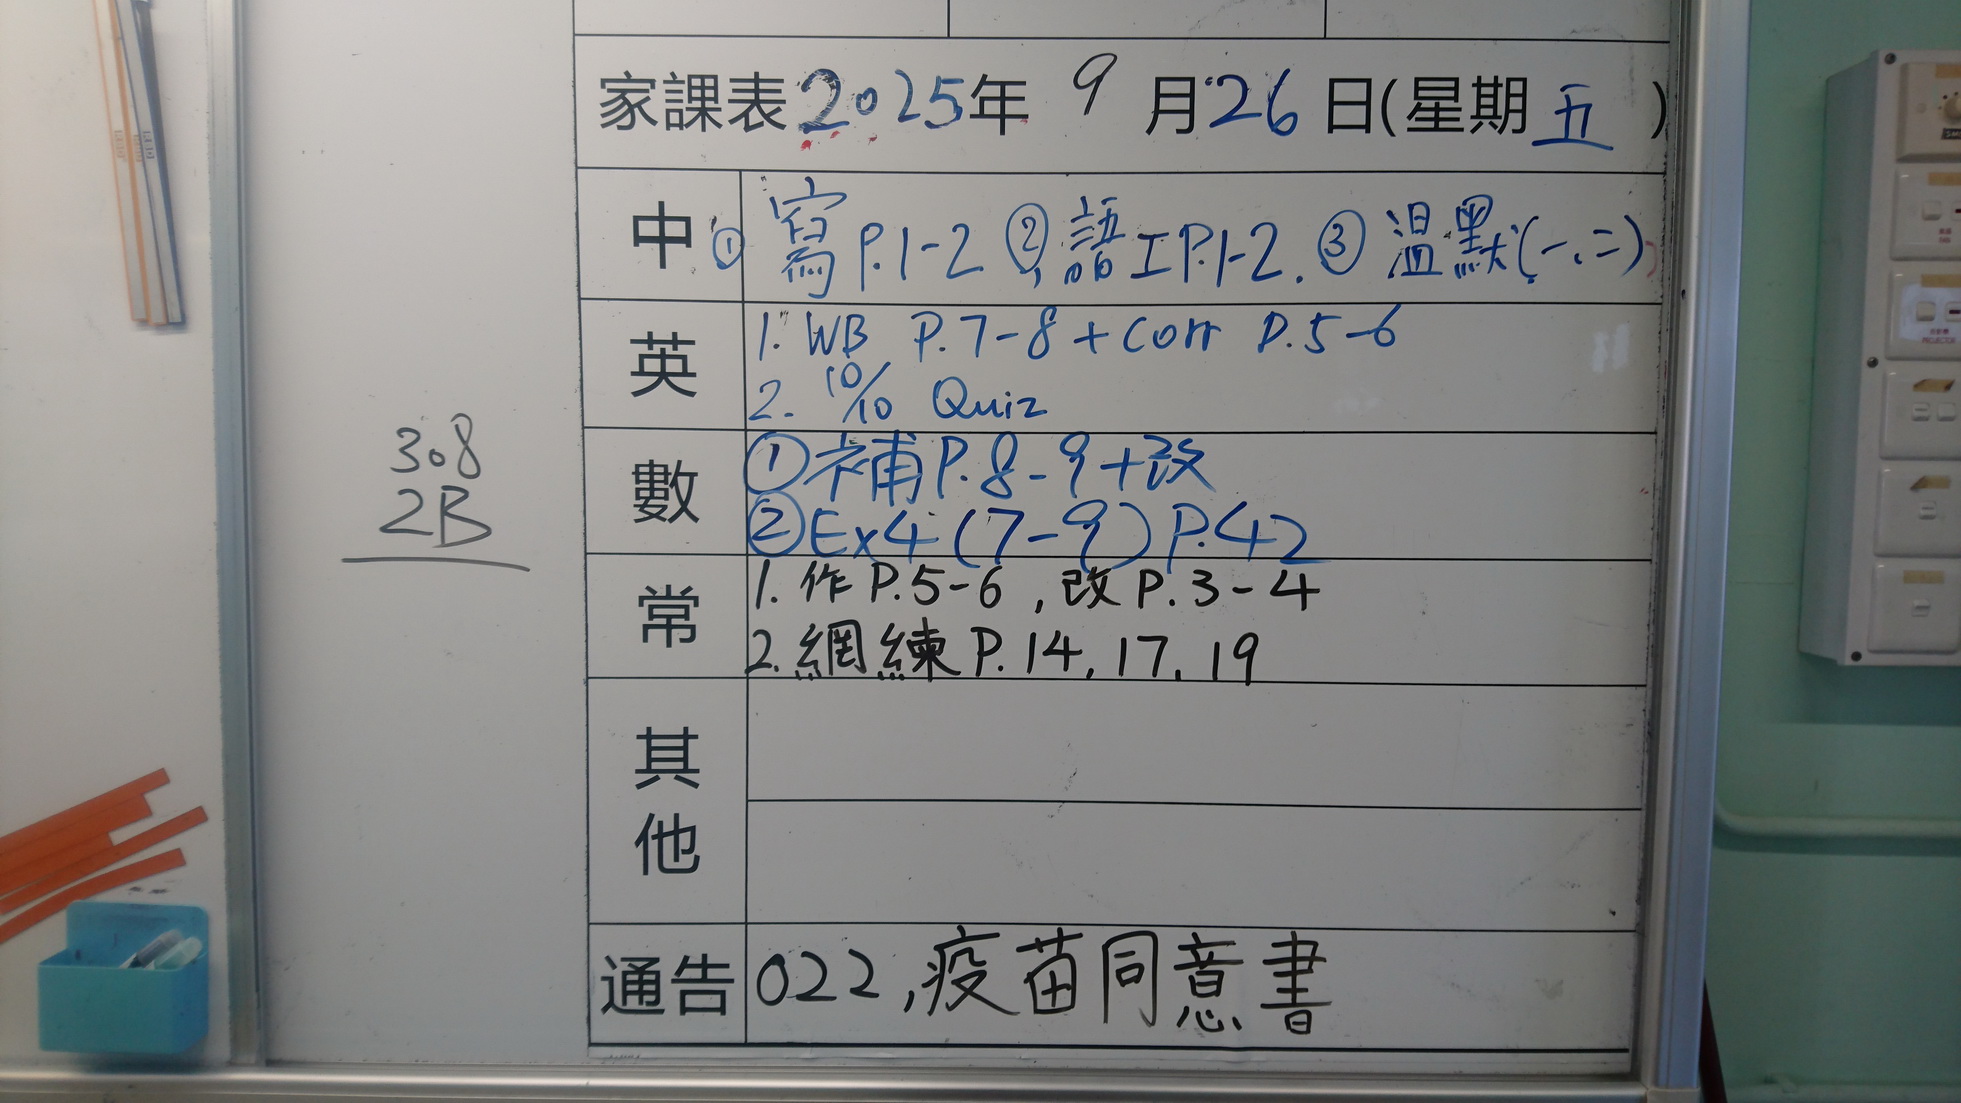 家課表2025年 9月26日(星期五)
中 ① 寫P.1-2 ②語工P.1-2. ③溫默(一、二)
英 1. WB P.7-8 + Corr P.5-6
2. 10/10 Quiz
數 ①補P.8-9+改
②Ex4(7-9) P.42
常 1. 作P.5-6, 改P.3-4
2. 網練P.14, 17, 19
其他
通告 022,疫苗同意書
308
2B